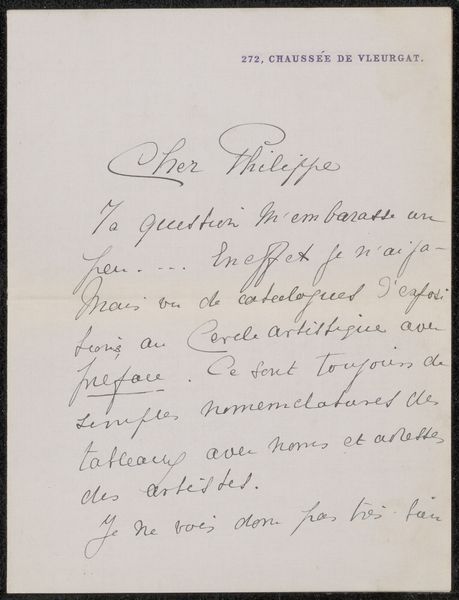 272, CHAUSSÉE DE VLEURGAT.
Cher Philippe
Ta question m'embarasse un
peu. ... En effet je n'ai ja-
mais vu de catalogues d'exposi
tions au Cercle artistique avec
préface. Ce sont toujours de
simples nomenclatures des
tableaux avec noms et adresses
des artistes.
Je ne vois donc pas très bien